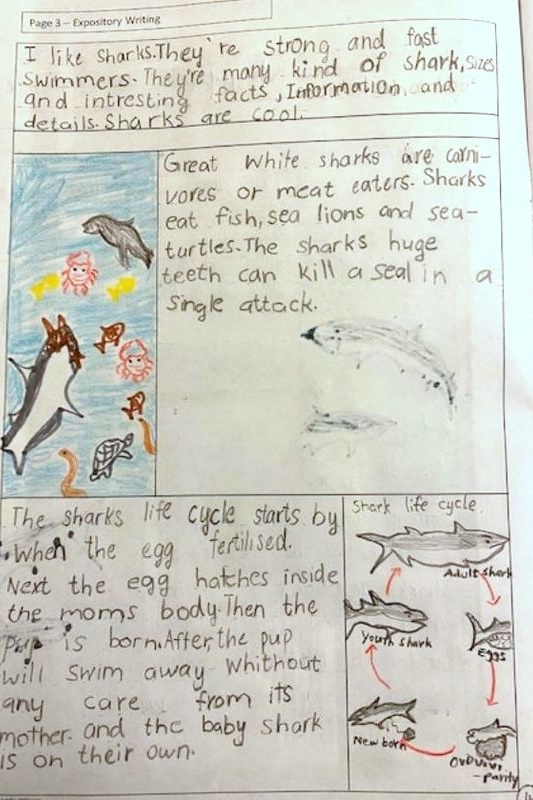 Page 3 – Expository Writing
I like sharks.They're strong and fast
swimmers. They're many kind of shark,sizes
and intresting facts, Information, and
details. Sharks are cool.
Great white sharks are carni-
vores or meat eaters. Sharks
eat fish, sea lions and sea-
turtles.The sharks huge
teeth can kill a seal in a
single attack.
The sharks life cycle starts by
when the egg fertilised.
Next the egg hatches inside
the moms body.Then the
pup is born.After,the pup
will swim away whithout
any care from its
mother. and the baby shark
is on their own.
Shark life cycle
Adult shark
Youth shark
Eggs
New born
-parity